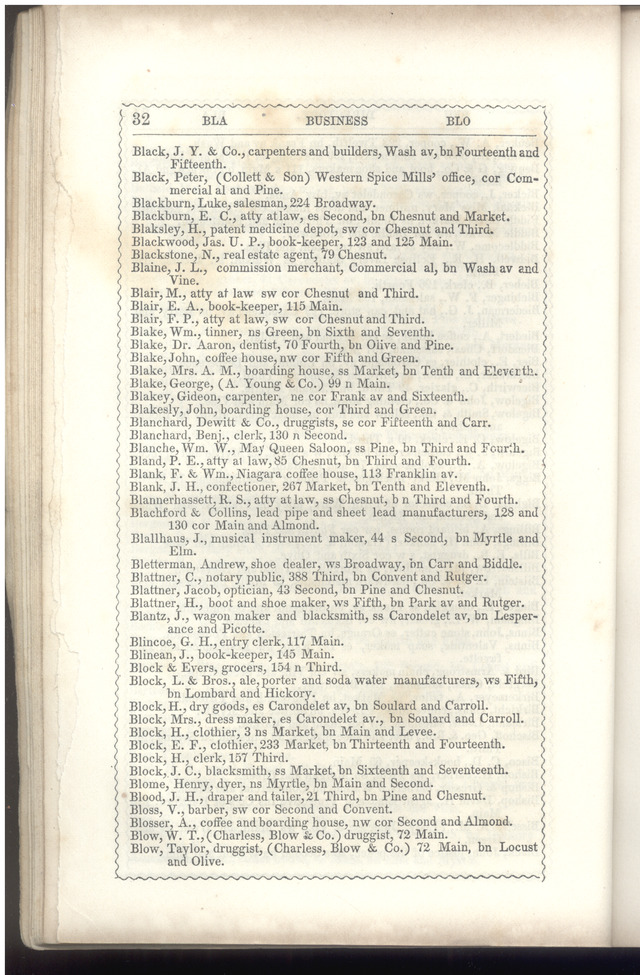 32 BLA BUSINESS BLO
Black, J. Y. & Co., carpenters and builders, Wash av, bn Fourteenth and
Fifteenth.
Black, Peter, (Collett & Son) Western Spice Mills' office, cor Com-
mercial al and Pine.
Blackburn, Luke, salesman, 224 Broadway.
Blackburn, E. C., atty at law, es Second, bn Chesnut and Market.
Blaksley, H., patent medicine depot, sw cor Chesnut and Third.
Blackwood, Jas. U. P., book-keeper, 123 and 125 Main.
Blackstone, N., real estate agent, 79 Chesnut.
Blaine, J. L., commission merchant, Commercial al, bn Wash av and
Vine.
Blair, M., atty at law sw cor Chesnut and Third.
Blair, E. A., book-keeper, 115 Main.
Blair, F. P., atty at law, sw cor Chesnut and Third.
Blake, Wm., tinner, ns Green, bn Sixth and Seventh.
Blake, Dr. Aaron, dentist, 70 Fourth, bn Olive and Pine.
Blake, John, coffee house, nw cor Fifth and Green.
Blake, Mrs. A. M., boarding house, ss Market, bn Tenth and Eleventh.
Blake, George, (A. Young & Co.) 99 n Main.
Blakey, Gideon, carpenter, ne cor Frank av and Sixteenth.
Blakesly, John, boarding house, cor Third and Green.
Blanchard, Dewitt & Co., druggists, se cor Fifteenth and Carr.
Blanchard, Benj., clerk, 130 n Second.
Blanche, Wm. W., May Queen Saloon, ss Pine, bn Third and Fourth.
Bland, P. E., atty at law, 85 Chesnut, bn Third and Fourth.
Blank, F. & Wm., Niagara coffee house, 113 Franklin av.
Blank, J. H., confectioner, 267 Market, bn Tenth and Eleventh.
Blannerhassett, R. S., atty at law, ss Chesnut, b n Third and Fourth.
Blachford & Collins, lead pipe and sheet lead manufacturers, 128 and
130 cor Main and Almond.
Blallhaus, J., musical instrument maker, 44 s Second, bn Myrtle and
Elm.
Bletterman, Andrew, shoe dealer, ws Broadway, bn Carr and Biddle.
Blattner, C., notary public, 388 Third, bn Convent and Rutger.
Blattner, Jacob, optician, 43 Second, bn Pine and Chesnut.
Blattner, H., boot and shoe maker, ws Fifth, bn Park av and Rutger.
Blantz, J., wagon maker and blacksmith, ss Carondelet av, bn Lesper-
ance and Picotte.
Blincoe, G. H., entry clerk, 117 Main.
Blinean, J., book-keeper, 145 Main.
Block & Evers, grocers, 154 n Third.
Block, L. & Bros., ale, porter and soda water manufacturers, ws Fifth,
bn Lombard and Hickory.
Block, H., dry goods, es Carondelet av, bn Soulard and Carroll.
Block, Mrs., dress maker, es Carondelet av., bn Soulard and Carroll.
Block, H., clothier, 3 ns Market, bn Main and Levee.
Block, E. F., clothier, 233 Market, bn Thirteenth and Fourteenth.
Block, H., clerk, 157 Third.
Block, J. C., blacksmith, ss Market, bn Sixteenth and Seventeenth.
Blome, Henry, dyer, ns Myrtle, bn Main and Second.
Blood, J. H., draper and tailer, 21 Third, bn Pine and Chesnut.
Bloss, V., barber, sw cor Second and Convent.
Blosser, A., coffee and boarding house, nw cor Second and Almond.
Blow, W. T., (Charless, Blow & Co.) druggist, 72 Main.
Blow, Taylor, druggist, (Charless, Blow & Co.) 72 Main, bn Locust
and Olive.